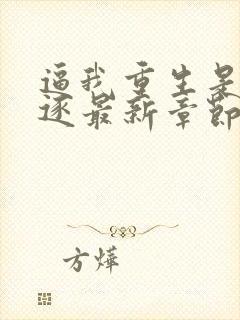 逼我重生是
逐最新章节
方烨